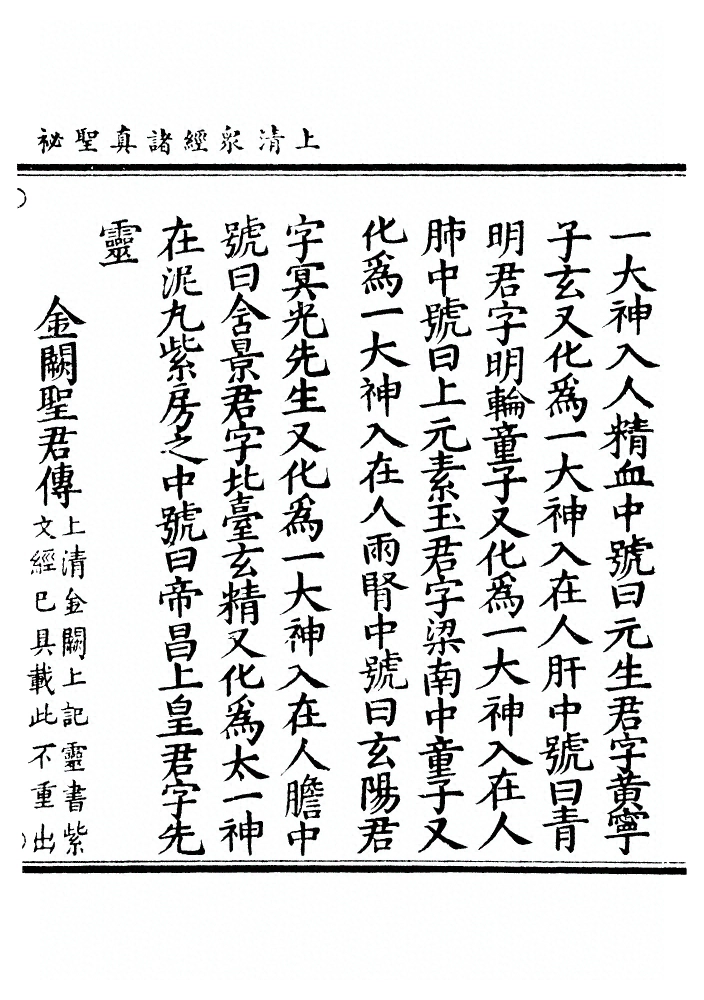 上清衆經諸真聖祕
一大神入人精血中號曰元生君字黄寧
子玄又化爲一大神入在人肝中號曰青
明君字明輪童子又化爲一大神入在人
肺中號曰上元素玉君字梁南中童子又
化爲一大神入在人兩腎中號曰玄陽君
字冥光先生又化爲一大神入在人膽中
號曰含景君字北臺玄精又化爲太一神
在泥丸紫房之中號曰帝昌上皇君字先
靈
金闕聖君傳
上清金闕上記靈書紫
文經已具載此不重出